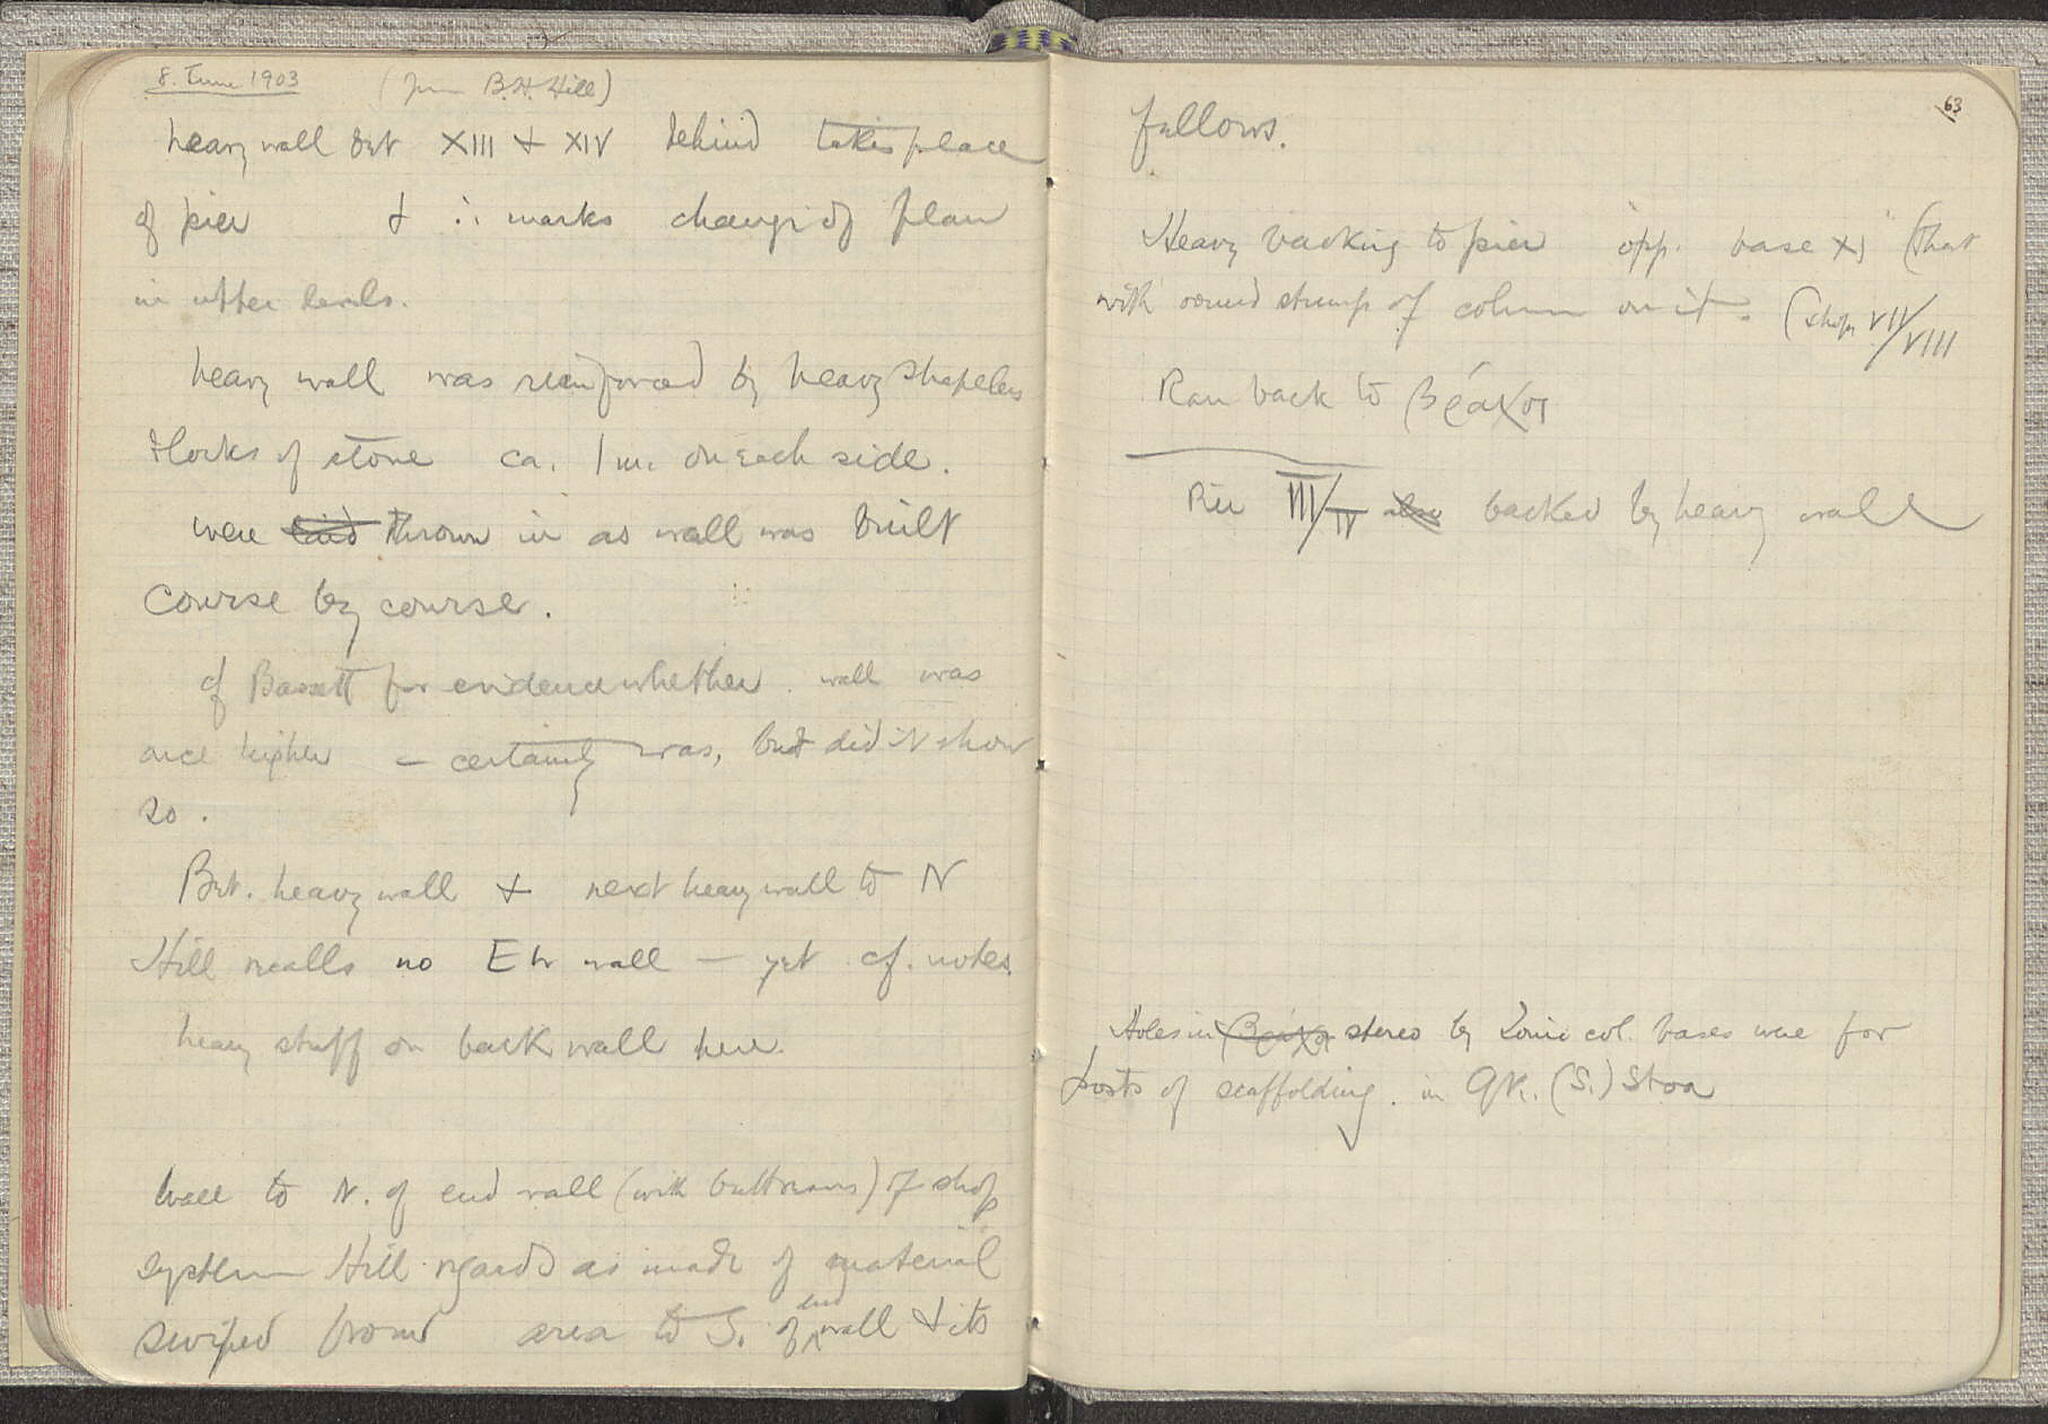 8. June 1903 (from B.H. Hill)
heavy wall bet XIII + XIV behind takes place
of pier + ∴ marks change of plan
in upper levels.
heavy wall was reinforced by heavy shapeless
blocks of stone ca. 1 m. on each side.
were laid thrown in as wall was built
course by course.
cf Bassett for evidence whether wall was
once higher — certainly was, but did it show
so.
Bet. heavy wall + next heavy wall to N
Hill recalls no EW wall — yet cf. notes
heavy stuff on back wall here.
Wall to N. of end wall (with buttresses) of shop
system Hill regards as made of material
swiped from area to S. of end wall + its
63
fellows.
Heavy backing to pier "opp. base XI" (that
with round stump of column on it. (shop VII/VIII
Ran back to βράχος
Pier III/IV also backed by heavy wall
Holes in βράχος stereo by Ionic col. bases were for
posts of scaffolding. in Gk. (S.) Stoa